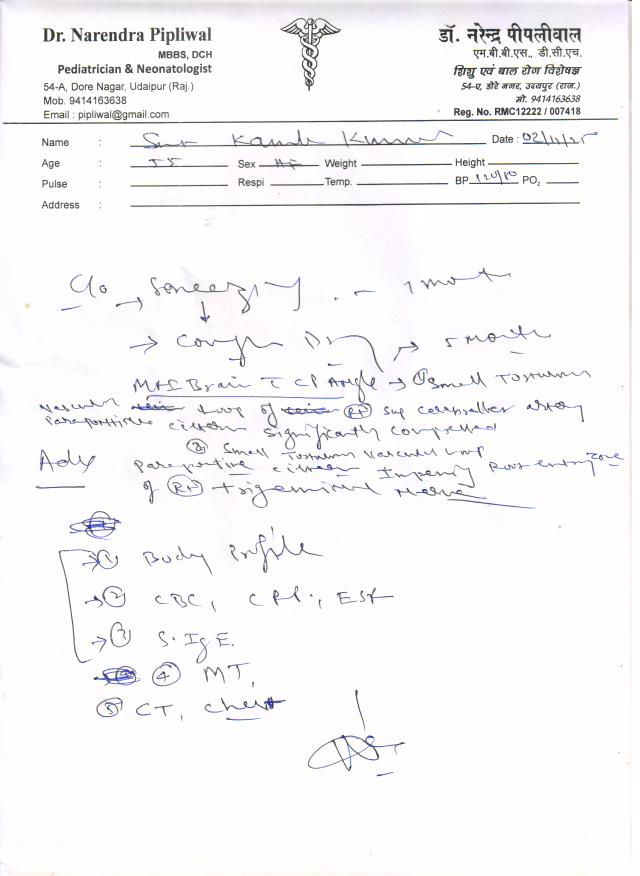 Dr. Narendra Pipliwal
MBBS, DCH
Pediatrician & Neonatologist
54-A, Dore Nagar, Udaipur (Raj.)
Mob. 9414163638
Email : pipliwal@gmail.com
डॉ. नरेन्द्र पीपलीवाल
एम.बी.बी.एस., डी.सी.एच.
शिशु एवं बाल रोग विशेषज्ञ
54-ए, डोरे नगर, उदयपुर (राज.)
मो. 9414163638
Reg. No. RMC12222 / 007418
Name : Date : 02/11/25
Age : 55 Sex Weight Height
Pulse : Respi Temp. BP 120/80 PO2
Address :
C/o → Sneezing - 1 month
→ Cough Dry → 5 month
MRI Brain C CP Angle → ① Small Tortuous
Vascular Loop of Rt Sup cerebellar artery
cistern significantly compressed
② Small Tortuous Vascular Loop
Adv cistern Root entry zone
of Rt trigeminal nerve
→ ① Body Profile
→ ② CBC, CRP, ESR
→ ③ S. IgE.
④ MT,
⑤ CT, Chest